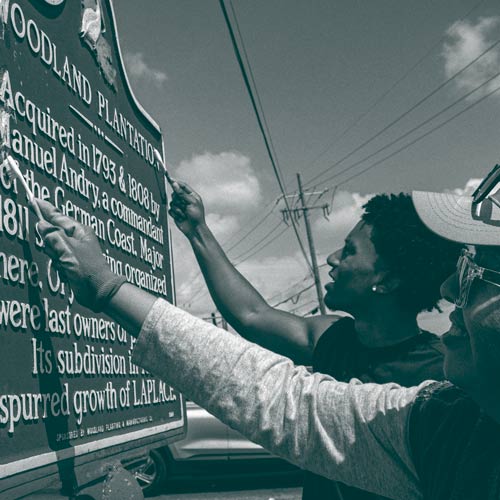 WOODLAND PLANTATION
Acquired in 1793 & 1808 by
anuel Andry, a commandant
of the German Coast. Major
1811 organized
here.
were last owners of
Its subdivision in
spurred growth of LAPLACE.
SPONSORED BY WOODLAND PLANTING & MANUFACTURING CO.